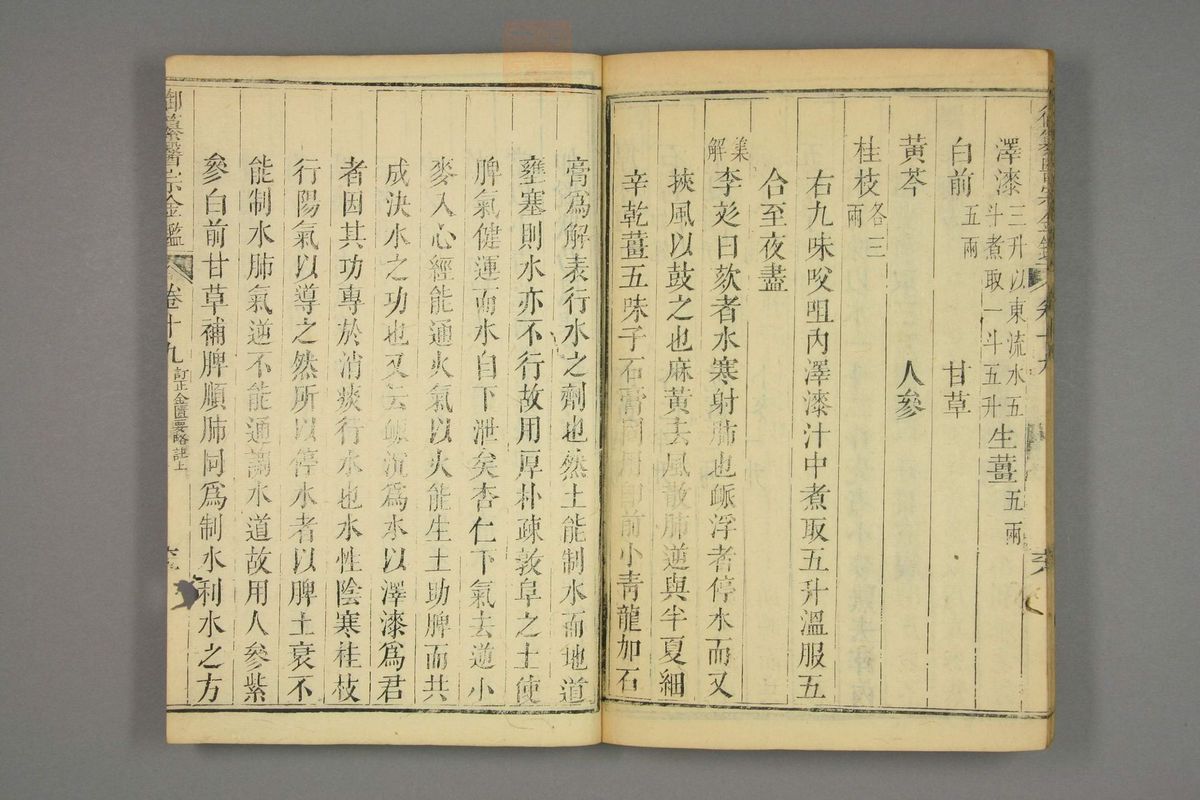 澤漆三升以東流水五斗煮取一斗五升 生薑五兩
白前五兩 甘草
黃芩 人參
桂枝各三兩
右九味㕮咀內澤漆汁中煮取五升溫服五
合至夜盡
集解李彣曰欬者水寒射肺也脈浮者停水而又
挾風以鼓之也麻黃去風散肺逆與半夏細
辛乾薑五味子石膏同用即前小青龍加石
膏為解表行水之劑也然土能制水而地道
壅塞則水亦不行故用厚朴疎敦阜之土使
脾氣健運而水自下泄矣杏仁下氣去逆小
麥入心經能通火氣以火能生土助脾而共
成決水之功也又云脈沉為水以澤漆為君
者因其功專於消痰行水也水性陰寒桂枝
行陽氣以導之然所以停水者以脾土衰不
能制水肺氣逆不能通調水道故用人參紫
參白前甘草補脾順肺同為制水利水之方
御纂醫宗金鑑 卷十九 訂正金匱要略註上